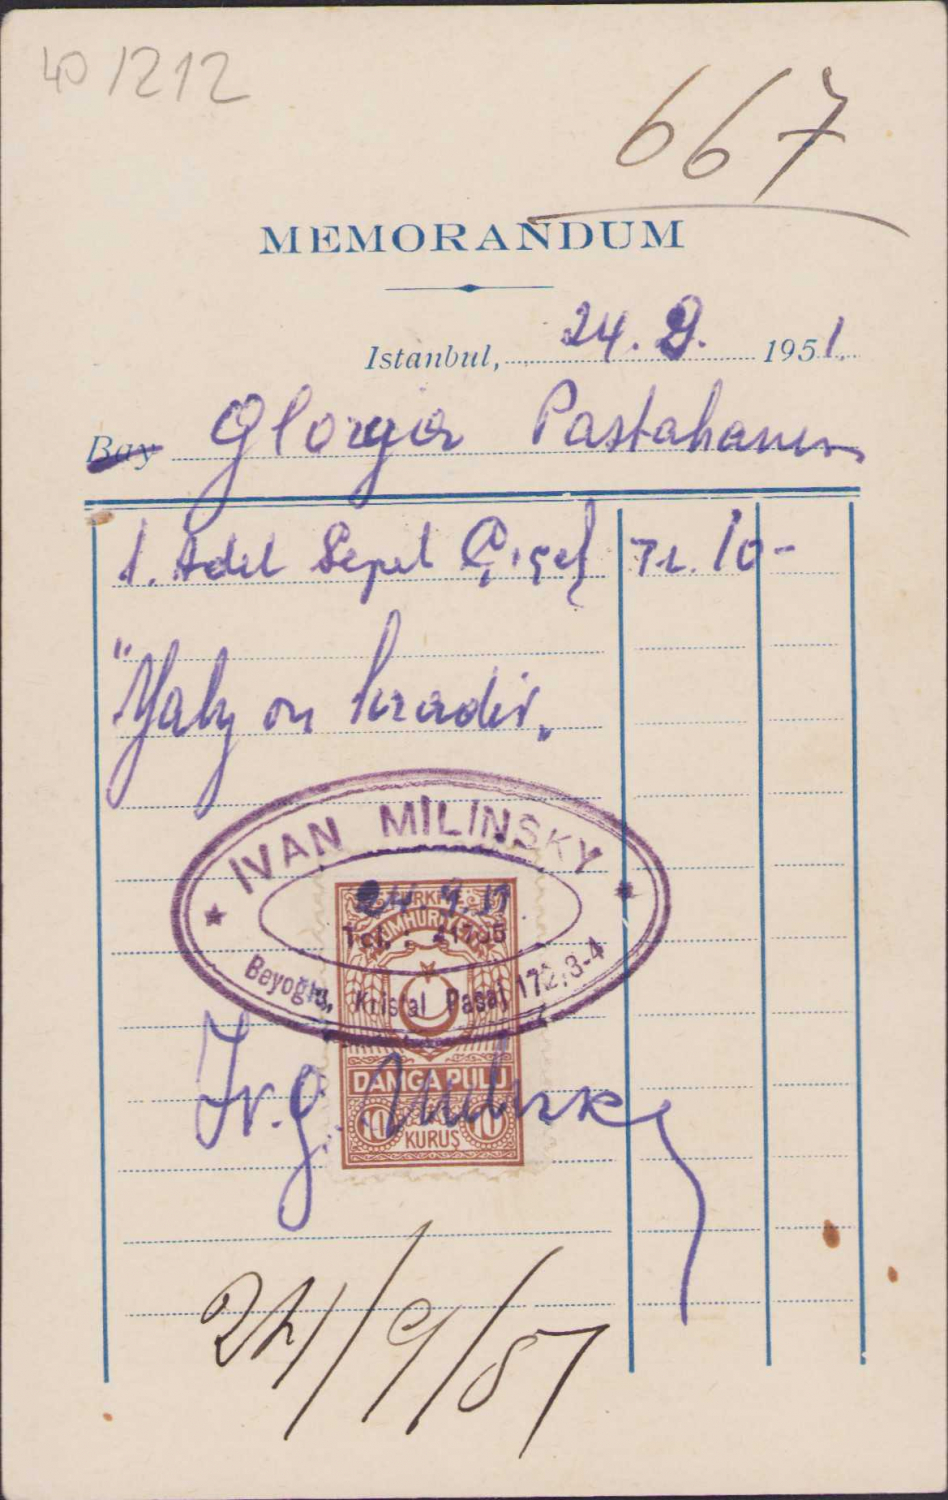 40/212
667
MEMORANDUM
Istanbul, 24. 9. 1951.
Bay Glorya Pastahanesi
1. Adet Sepet Çiçek TL. 10-
"Yalnız on liradır„
IVAN MİLİNSKY
24.9.51
TÜRKİYE
CUMHURİYETİ
Beyoğlu, Kristal Pasaj 172, 3-4
DAMGA PULU
10 10
KURUŞ
24/9/51